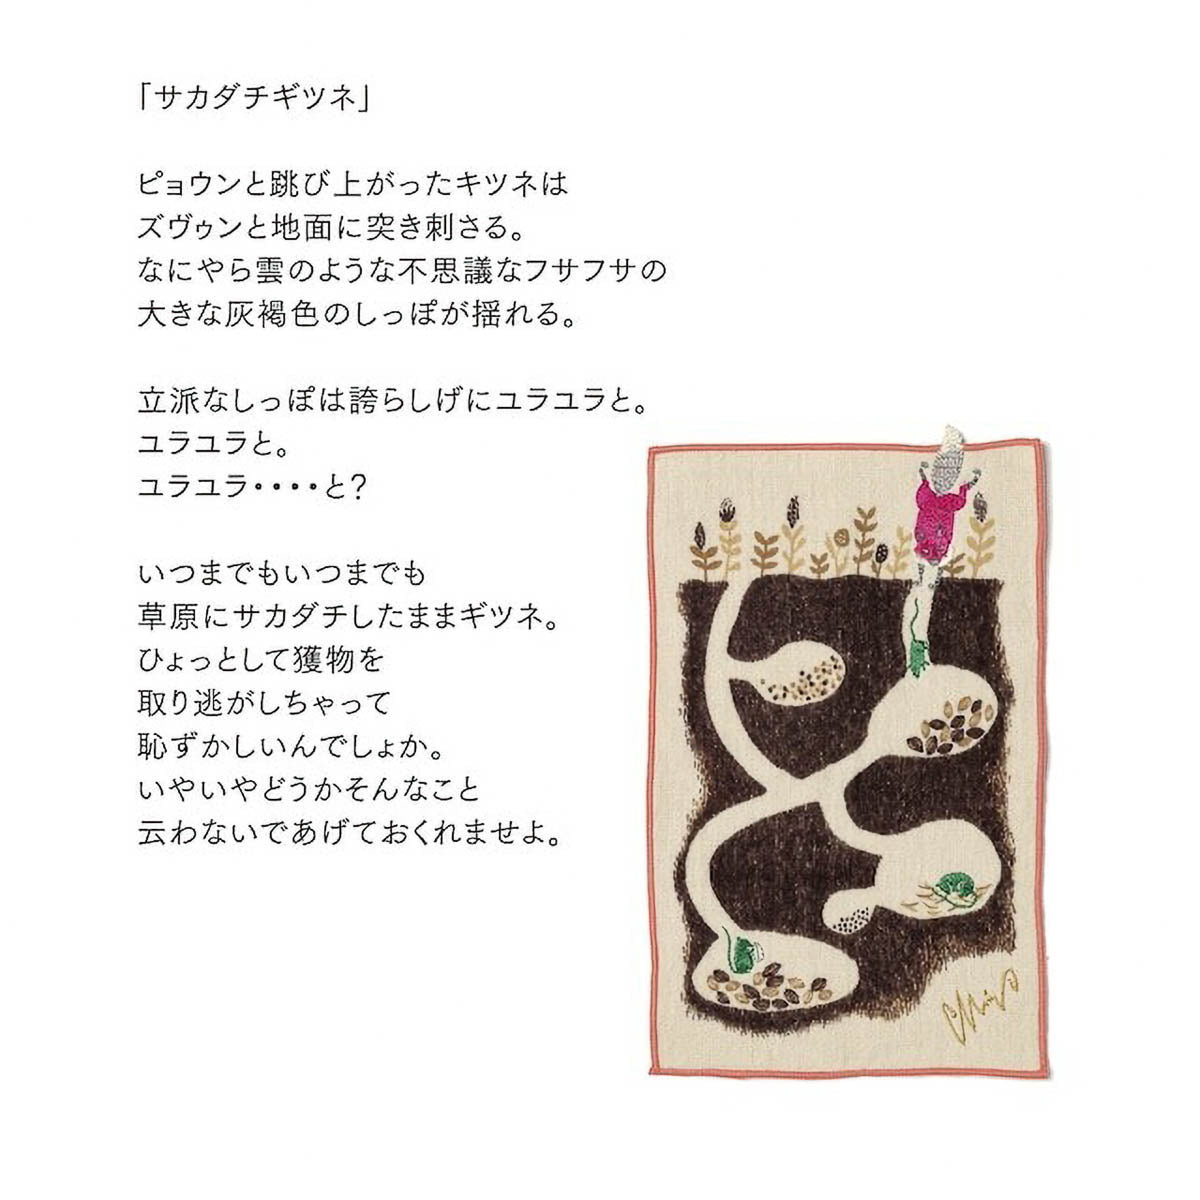 「サカダチギツネ」
ピョウンと跳び上がったキツネは
ズヴゥンと地面に突き刺さる。
なにやら雲のような不思議なフサフサの
大きな灰褐色のしっぽが揺れる。
立派なしっぽは誇らしげにユラユラと。
ユラユラと。
ユラユラ････と?
いつまでもいつまでも
草原にサカダチしたままギツネ。
ひょっとして獲物を
取り逃がしちゃって
恥ずかしいんでしょか。
いやいやどうかそんなこと
云わないであげておくれませよ。